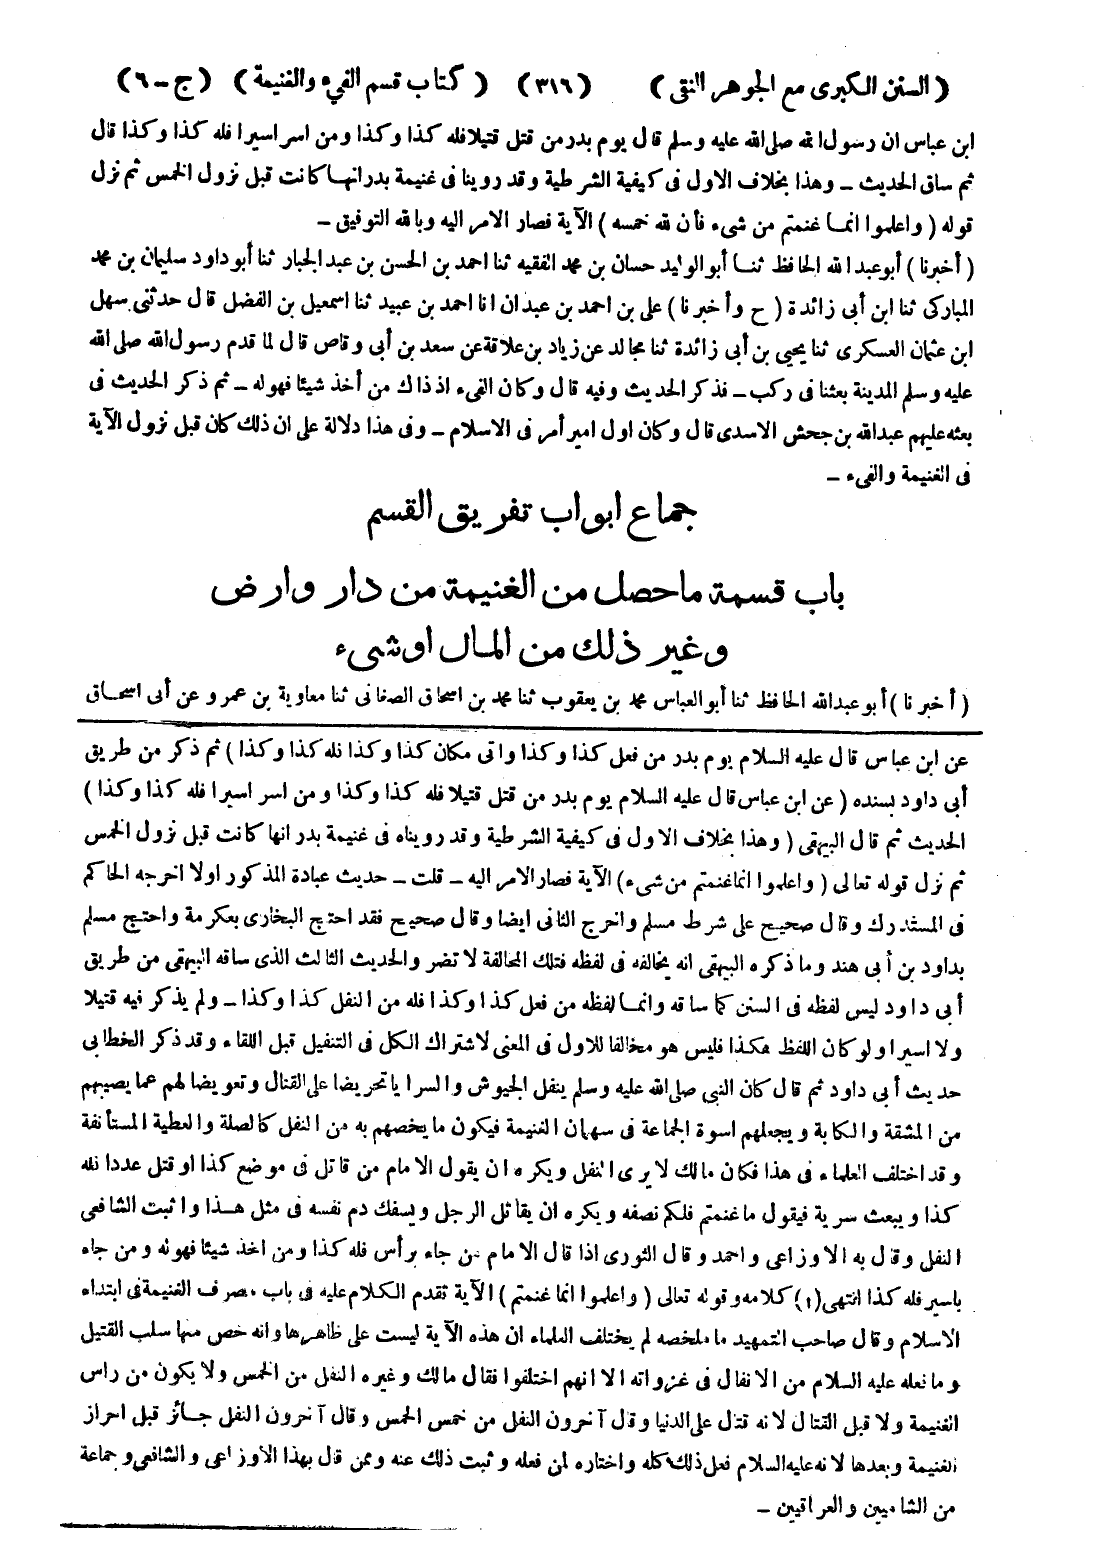 ( السنن الكبرى مع الجوهر النقى ) ( ٣١٦ ) ( كتاب قسم الفىء والغنيمة ) ( ج - ٦ )
ابن عباس ان رسول الله صلى الله عليه وسلم قال يوم بدر من قتل قتيلا فله كذا وكذا ومن اسر اسيرا فله كذا وكذا قال
ثم ساق الحديث - وهذا بخلاف الاول فى كيفية الشرطية وقد روينا فى غنيمة بدر انها كانت قبل نزول الخمس ثم نزل
قوله ( واعلموا انما غنمتم من شىء فأن لله خمسه ) الآية فصار الامر اليه وبالله التوفيق -
( أخبرنا ) أبو عبد الله الحافظ ثنا أبو الوليد حسان بن محمد الفقيه ثنا احمد بن الحسن بن عبد الجبار ثنا أبو داود سليمان بن محمد
المباركى ثنا ابن أبى زائدة ( ح وأخبرنا ) على بن احمد بن عبدان انا احمد بن عبيد ثنا اسمعيل بن الفضل قال حدثنى سهل
ابن عثمان العسكرى ثنا يحيى بن أبى زائدة ثنا مجالد عن زياد بن علاقة عن سعد بن أبى وقاص قال لما قدم رسول الله صلى الله
عليه وسلم المدينة بعثنا فى ركب - فذكر الحديث وفيه قال وكان الفىء اذ ذاك من أخذ شيئا فهو له - ثم ذكر الحديث فى
بعثه عليهم عبد الله بن جحش الاسدى قال وكان اول امير أمر فى الاسلام - وفى هذا دلالة على ان ذلك كان قبل نزول الآية
فى الغنيمة والفىء -
جماع ابواب تفريق القسم
باب قسمة ما حصل من الغنيمة من دار وارض
وغير ذلك من المال او شىء
( أخبرنا ) أبو عبد الله الحافظ ثنا أبو العباس محمد بن يعقوب ثنا محمد بن اسحاق الصغانى ثنا معاوية بن عمرو عن أبى اسحاق
عن ابن عباس قال عليه السلام يوم بدر من فعل كذا وكذا واتى مكان كذا وكذا فله كذا وكذا ) ثم ذكر من طريق
أبى داود بسنده ( عن ابن عباس قال عليه السلام يوم بدر من قتل قتيلا فله كذا وكذا ومن اسر اسيرا فله كذا وكذا )
الحديث ثم قال البيهقى ( وهذا بخلاف الاول فى كيفية الشرطية وقد رويناه فى غنيمة بدر انها كانت قبل نزول الخمس
ثم نزل قوله تعالى ( واعلموا انما غنمتم من شىء ) الآية فصار الامر اليه - قلت - حديث عبادة المذكور اولا اخرجه الحاكم
فى المستدرك وقال صحيح على شرط مسلم واخرج الثانى ايضا وقال صحيح فقد احتج البخارى بعكرمة واحتج مسلم
بداود بن أبى هند وما ذكره البيهقى انه يخالفه فى لفظه فتلك المخالفة لا تضر والحديث الثالث الذى ساقه البيهقى من طريق
أبى داود ليس لفظه فى السنن كما ساقه وانما لفظه من فعل كذا وكذا فله من النفل كذا وكذا - ولم يذكر فيه قتيلا
ولا اسيرا ولو كان اللفظ هكذا فليس هو مخالفا للاول فى المعنى لاشتراك الكل فى التنفيل قبل اللقاء وقد ذكر الخطابى
حديث أبى داود ثم قال كان النبى صلى الله عليه وسلم ينفل الجيوش والسرايا تحريضا على القتال وتعويضا لهم عما يصيبهم
من المشقة والكابة ويجعلهم اسوة الجماعة فى سهمان الغنيمة فيكون ما يخصهم به من النفل كالصلة والعطية المستأنفة
وقد اختلف العلماء فى هذا فكان مالك لا يرى النفل ويكره ان يقول الامام من قاتل فى موضع كذا او قتل عددا فله
كذا ويبعث سرية فيقول ما غنمتم فلكم نصفه ويكره ان يقاتل الرجل ويسفك دم نفسه فى مثل هذا واثبت الشافعى
النفل وقال به الاوزاعى واحمد وقال الثورى اذا قال الامام من جاء برأس فله كذا ومن اخذ شيئا فهو له ومن جاء
باسير فله كذا انتهى (١) كلامه وقوله تعالى ( واعلموا انما غنمتم ) الآية تقدم الكلام عليه فى باب مصرف الغنيمة فى ابتداء
الاسلام وقال صاحب التمهيد ما ملخصه لم يختلف العلماء ان هذه الآية ليست على ظاهرها وانه خص منها سلب القتيل
وما نعله عليه السلام من الانفال فى غزواته الا انهم اختلفوا فقال مالك وغيره النفل من الخمس ولا يكون من راس
الغنيمة ولا قبل القتال لانه قتال على الدنيا وقال آخرون النفل من خمس الخمس وقال آخرون النفل جائز قبل احراز
الغنيمة وبعدها لانه عليه السلام فعل ذلك كله واختاره لمن فعله وثبت ذلك عنه وممن قال بهذا الاوزاعى والشافعى وجماعة
من الشاميين والعراقيين -